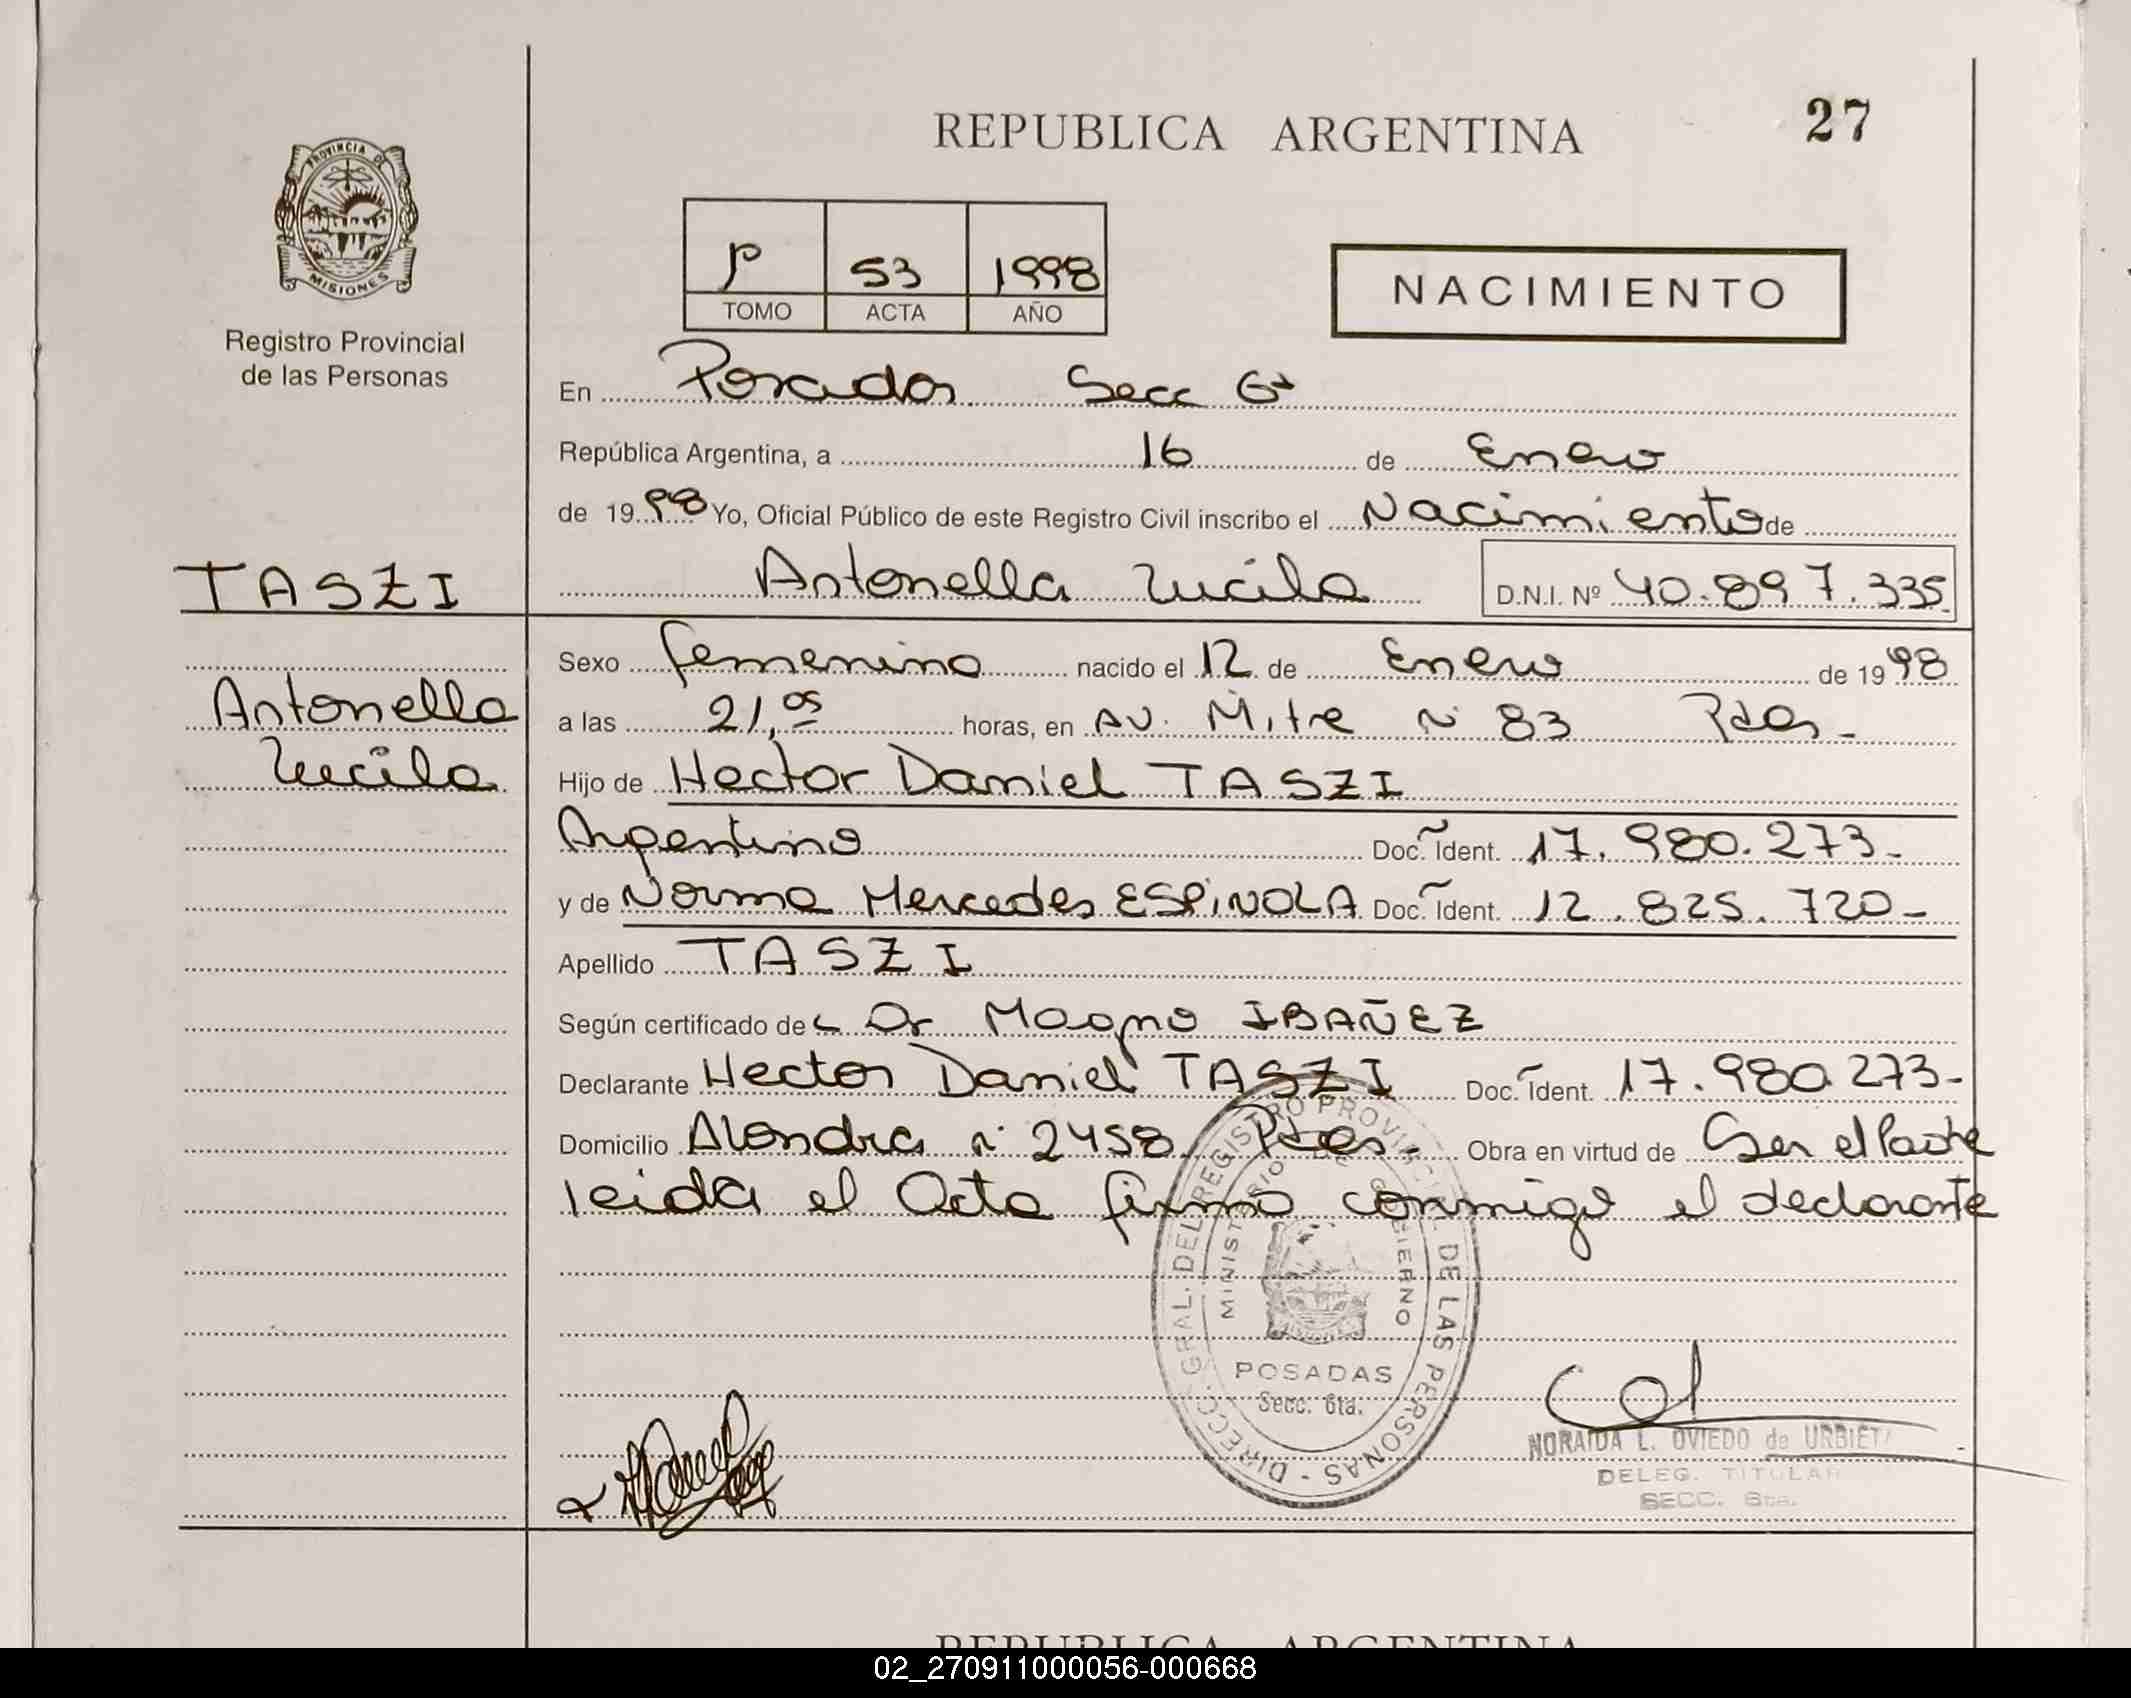 REPUBLICA ARGENTINA
27
PROVINCIA DE
MISIONES
Registro Provincial
de las Personas
P 53 1998
TOMO ACTA AÑO
NACIMIENTO
En Posadas Secc 6ª
República Argentina, a 16 de Enero
de 1998 Yo, Oficial Público de este Registro Civil inscribo el Nacimiento de
TASZI
Antonella Lucila D.N.I. Nº 40.897.335
Antonella
Lucila
Sexo femenino nacido el 12 de Enero de 1998
a las 21,05 horas, en AV. Mitre Nº 83 Pdas-
Hijo de Hector Daniel TASZI
Argentino Doc. Ident. 17.980.273-
y de Norma Mercedes ESPINOLA Doc. Ident. 12.825.720-
Apellido TASZI
Según certificado de Dr Magno IBAÑEZ
Declarante Hector Daniel TASZI Doc. Ident. 17.980.273-
Domicilio Alondra nº 2458 Pdas. Obra en virtud de Ser el Padre
leida el Acta firma conmigo el declarante
DIRECC. GRAL. DEL REGISTRO PROVINCIAL DE LAS PERSONAS
MINISTERIO DE GOBIERNO
POSADAS
Secc. 6ta.
NORAIDA L. OVIEDO de URBIETA
DELEG. TITULAR
SECC. 6ta.
REPUBLICA ARGENTINA
02_270911000056-000668